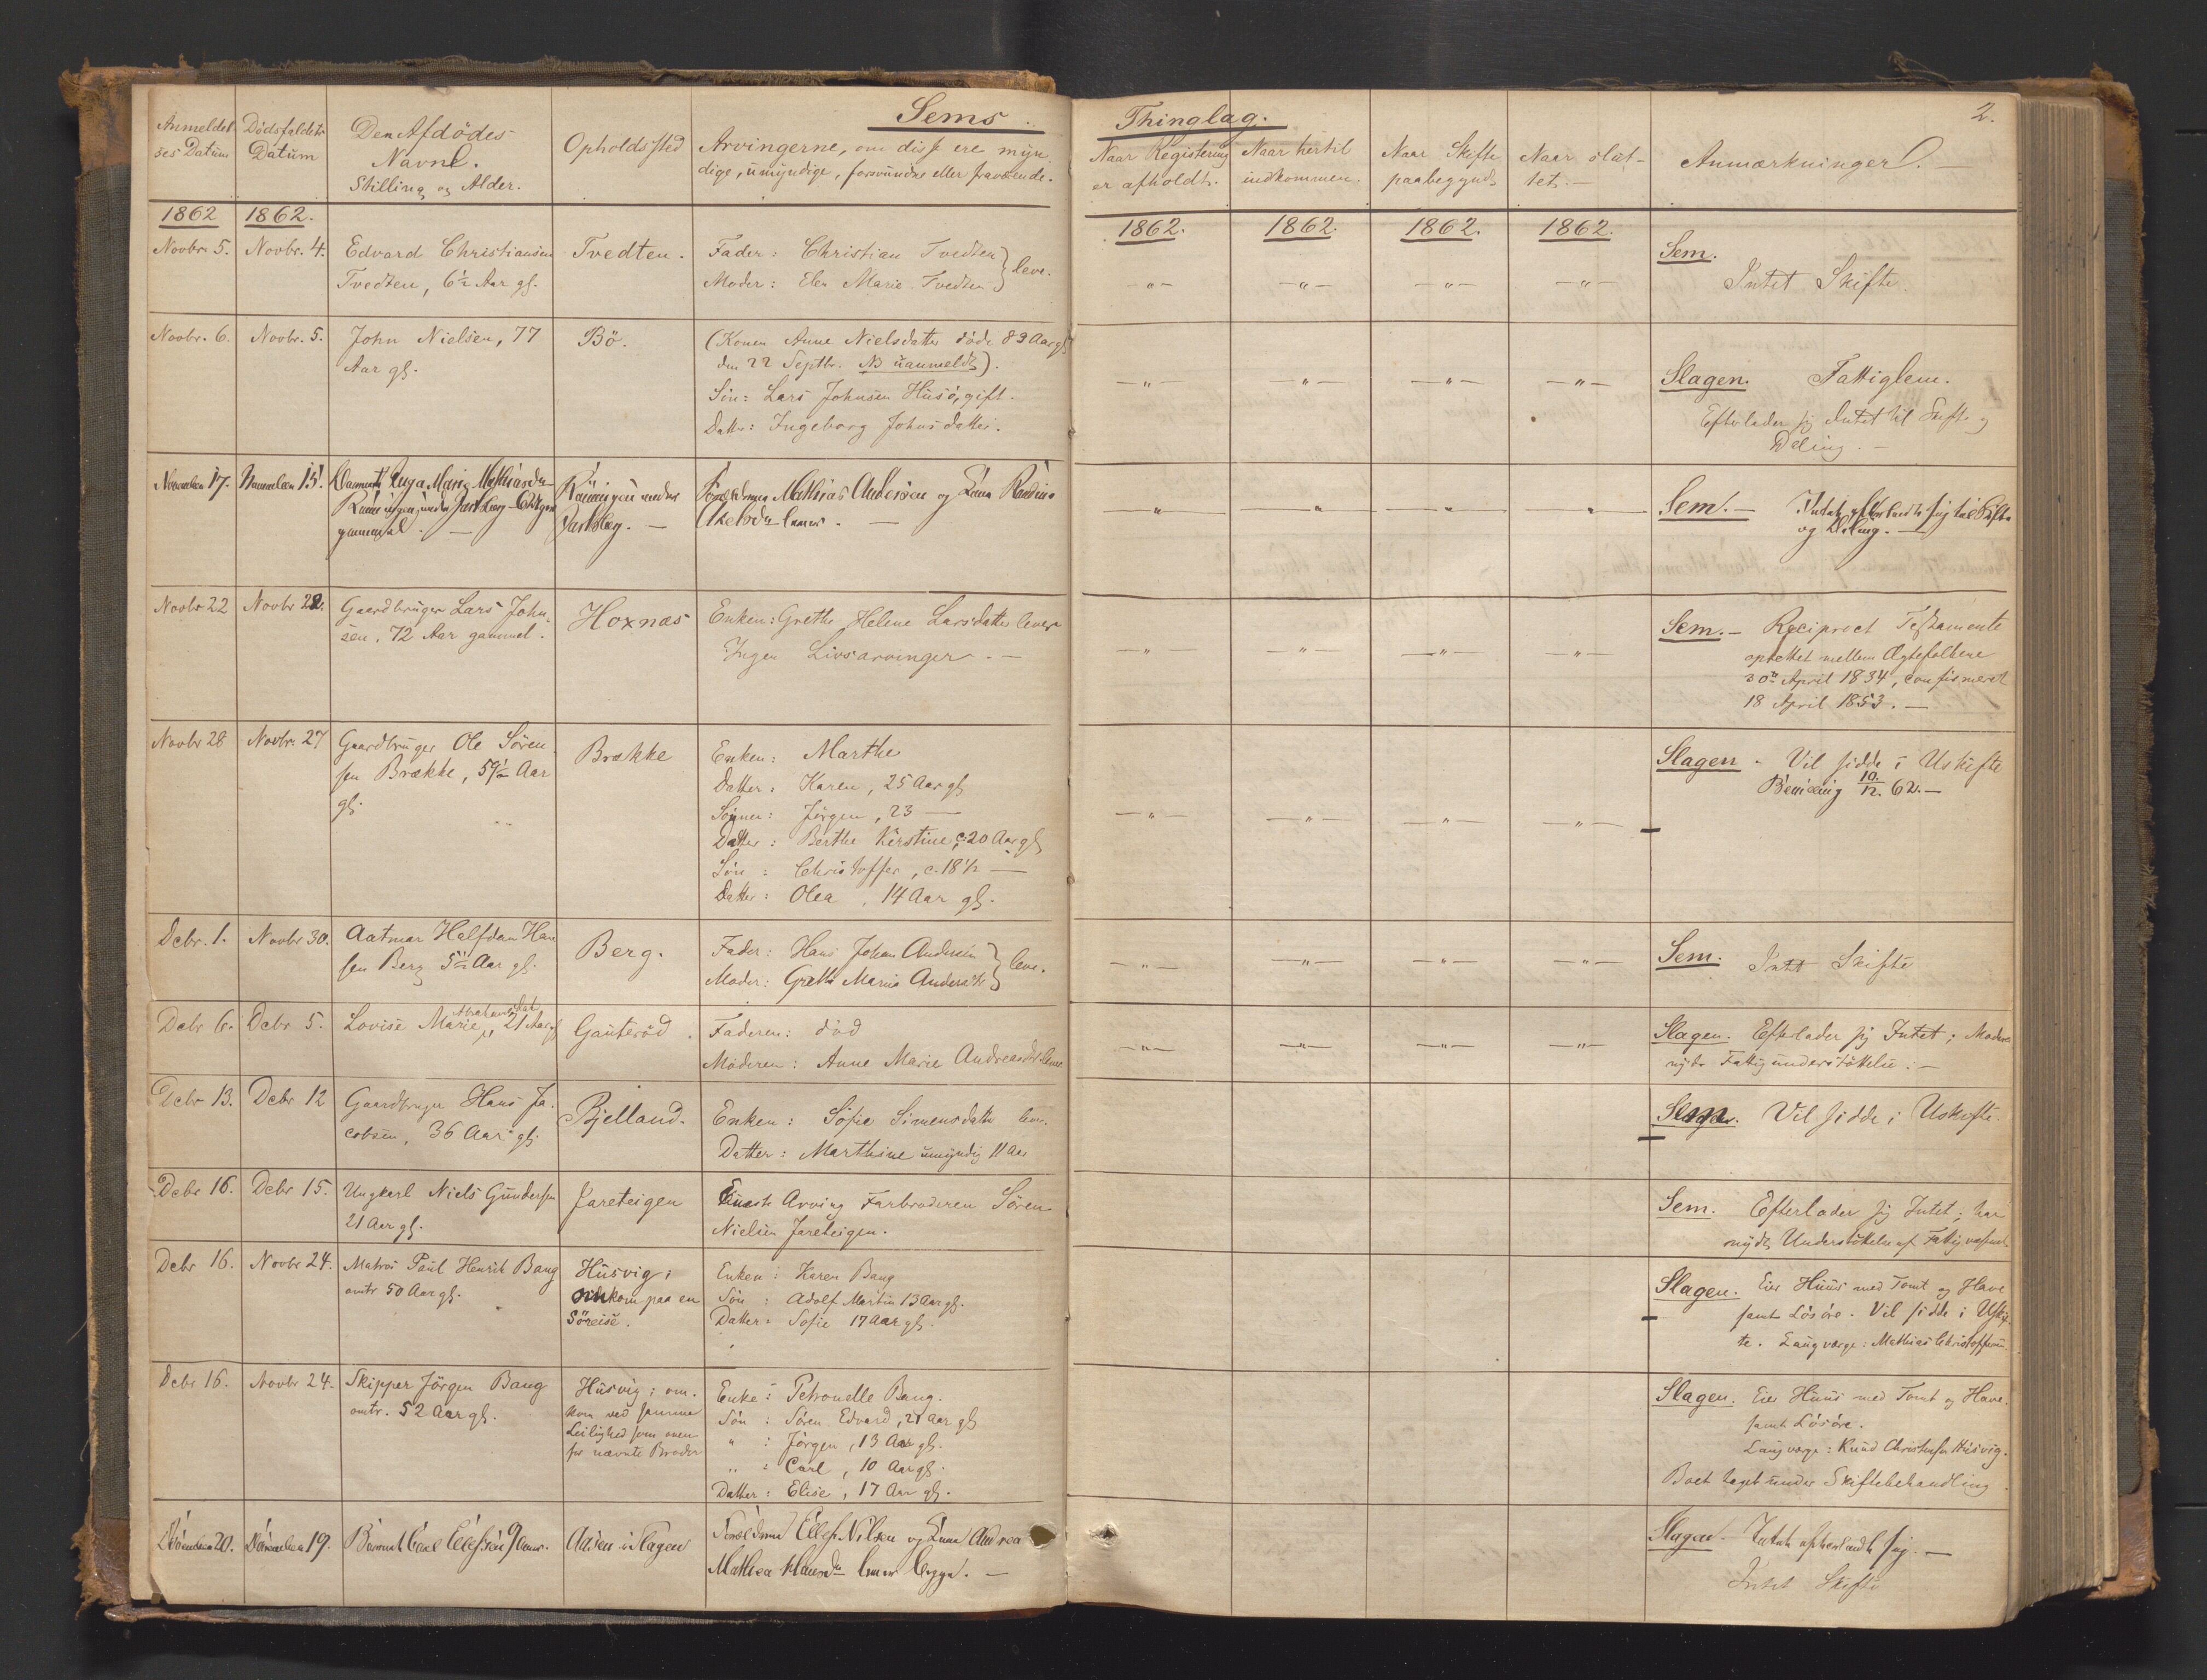 Sems
Thinglag.
2.
Anmeldel-
ses Datum
Dödsfaldets
Datum
Den Afdödes
Navn.
Stilling og Alder.
Opholdssted
Arvingerne, om disse ere myn-
dige, umyndige, forsvundne eller fraværende.
Naar Registering
er afholdt.
Naar hertil
indkommen.
Naar Skifte
paabegyndt
Naar slut-
tet.
Anmærkninger.
1862 1862.
1862. 1862. 1862. 1862.
Novbr. 5. Novbr. 4. Edvard Christiansen
Tvedten, 6½ Aar gl.
Tvedten.
Fader: Christian Tvedten
Moder: Elen Marie Tvedten } leve.
Sem.
Intet Skifte.
Novbr. 6. Novbr. 5. John Nielsen, 77
Aar gl.
Bö.
(Konen Anne Nielsdatter döde 83 Aar gl
den 22 Septbr. NB uanmeldt).
Sön: Lars Johnsen Husö, gift.
Datter: Ingeborg Johnsdatter.
Slagen. Fattiglem.
Efterlader sig Intet til Skifte og
Deling.
November 17. November 15.
Inga Marie Mathiasdr
Rönningen under Jarlsberg
gammel.
Rönningen under
Jarlsberg.
Forældrene Mathias Andersen og
lever.
Sem. Intet efterladt sig til Skifte
og Deling.
Novbr 22 Novbr 22. Gaardbruger Lars John-
sen, 72 Aar gammel.
Hoxnæs
Enken: Grethe Helene Larsdatter lever
Ingen Livsarvinger.
Sem. Reciproct Testamente
oprettet mellem Ægtefolkene
30te April 1834, confirmeret
18 April 1853.
Novbr 28 Novbr. 27 Gaardbruger Ole Sören-
sen Brække, 59½ Aar
gl.
Brække
Enken: Marthe
Datter: Karen, 25 Aar gl
Sönnen: Jörgen, 23 —
Datter: Berthe Kirstine, c. 20 Aar gl
Sön: Christoffer, c. 18½ —
Datter: Olea, 14 Aar gl.
Slagen. Vil sidde i Uskifte
Bevilling 10/12. 62.
Debr. 1. Novbr 30. Aatmar Halfdan Han-
sen Berg 5½ Aar gl.
Berg.
Fader: Hans Johan Andersen
Moder: Grethe Marie Andersdr } leve.
Sem. Intet Skifte
Debr 6. Debr 5. Lovise Marie Abrahamsdat., 21 Aar gl
Gauteröd.
Faderen: död
Moderen: Anne Marie Andreasdr lever
Slagen. Efterlader sig Intet; Moderen
nyder Fattigunderstöttelse.
Debr 13. Debr 12 Gaardbruger Hans Ja-
cobsen, 36 Aar gl.
Bjelland.
Enken: Sofie Simensdatter lever.
Datter: Marthine umyndig 11 Aar
Sem. Vil sidde i Uskifte.
Debr 16. Debr 15. Ungkarl Niels Gundersen
21 Aar gl.
Jareteigen
Eneste Arving Farbroderen Sören
Nielsen Jareteigen.
Sem. Efterlader sig Intet; har
nydt Understöttelse af Fattigvæsenet
Debr 16. Novbr 24. Matros Paul Henrik Bang
omtr 50 Aar gl.
Husvig;
omkom paa en
Söreise.
Enken: Karen Bang
Sön: Adolf Martin 13 Aar gl.
Datter: Sofie 17 Aar gl.
Slagen. Eier Huus med Tomt og Have
samt Lösöre. Vil sidde i Uskif-
te. Laugværge: Mathias Christoffersen.
Debr 16. Novbr 24. Skipper Jörgen Bang
omtr. 52 Aar gl.
Husvig; om-
kom ved samme
Leilighed som oven-
for nævnte Broder
Enke: Petronelle Bang.
Sön: Sören Edvard, 21 Aar gl
" : Jörgen, 13 Aar gl.
" : Carl, 10 Aar gl.
Datter: Elise, 17 Aar gl.
Slagen. Eier Huus med Tomt og Have
samt Lösöre.
Laugværge: Knud Christensen Husvig.
Boet taget under Skiftebehandling
December 20. December 19. Barnet Carl Ellefsen 9 Aar.
Aasen i Slagen
Forældrene Ellef Nilsen og Kone Andrea
Mathea Hansdr lever begge.
Slagen. Intet efterladt sig.
Intet Skifte